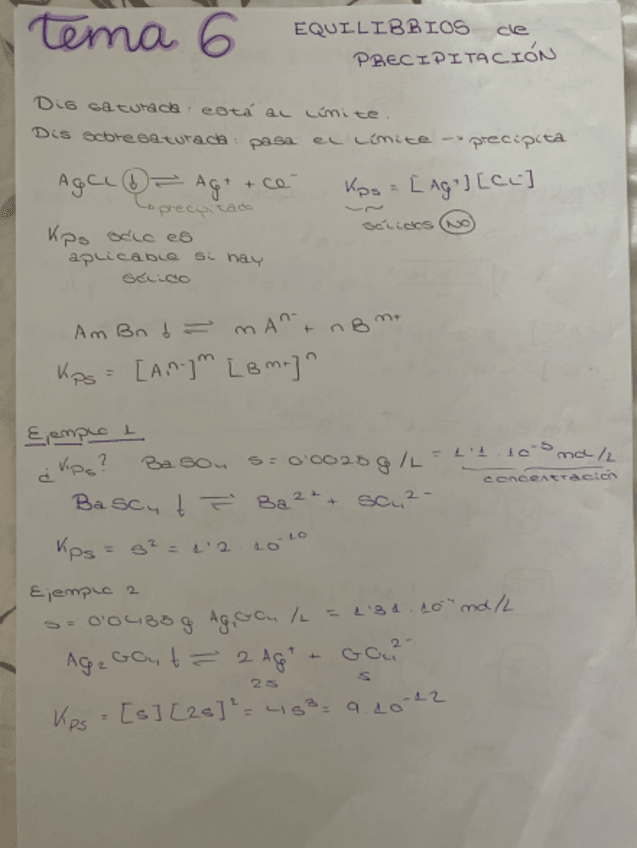 Tema 6
EQUILIBRIOS de
PRECIPITACIÓN
Dis saturada: está al límite.
Dis sobresaturada: pasa el límite → precipita
AgCl ↓ ⇌ Ag⁺ + Cl⁻ Kps = [Ag⁺][Cl⁻]
↳ precipitado sólidos NO
Kps sólo es
aplicable si hay
sólido
AmBn ↓ ⇌ mAⁿ⁻ + nBᵐ⁺
Kps = [Aⁿ⁻]ᵐ [Bᵐ⁺]ⁿ
Ejemplo 1
¿Kps? BaSO₄ s = 0'0025 g/L = 1'1 · 10⁻⁵ mol/L
concentración
BaSO₄ ↓ ⇌ Ba²⁺ + SO₄²⁻
Kps = s² = 1'2 · 10⁻¹⁰
Ejemplo 2
s = 0'0435 g Ag₂CrO₄ /L = 1'31 · 10⁻⁴ mol/L
Ag₂CrO₄ ↓ ⇌ 2 Ag⁺ + CrO₄²⁻
2s s
Kps = [s][2s]² = 4s³ = 9 · 10⁻¹²